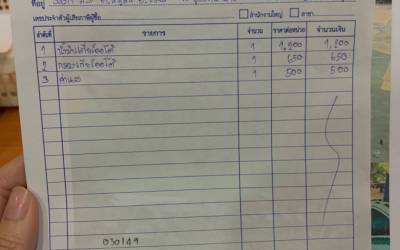 ที่อยู่
เลขประจำตัวผู้เสียภาษีผู้ซื้อ สำนักงานใหญ่ สาขา
ลำดับที่ รายการ จำนวน ราคาต่อหน่วย จำนวนเงิน
1 น้ำมันเกียร์ออโต้ 1 1,200 1,200
2 กรองเกียร์ออโต้ 1 650 650
3 ค่าแรง 1 500 500
030149